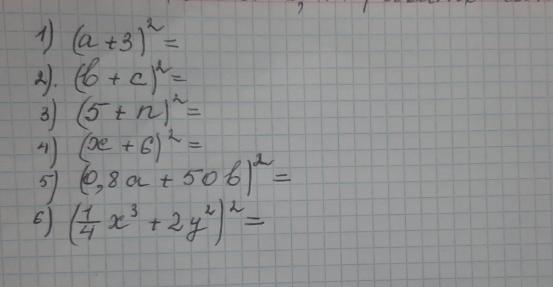 1) (a + 3)² =
2). (в + с)² =
3) (5 + n)² =
4) (x + 6)² =
5) (0,8a + 50в)² =
6) (1/4 x³ + 2y²)² =